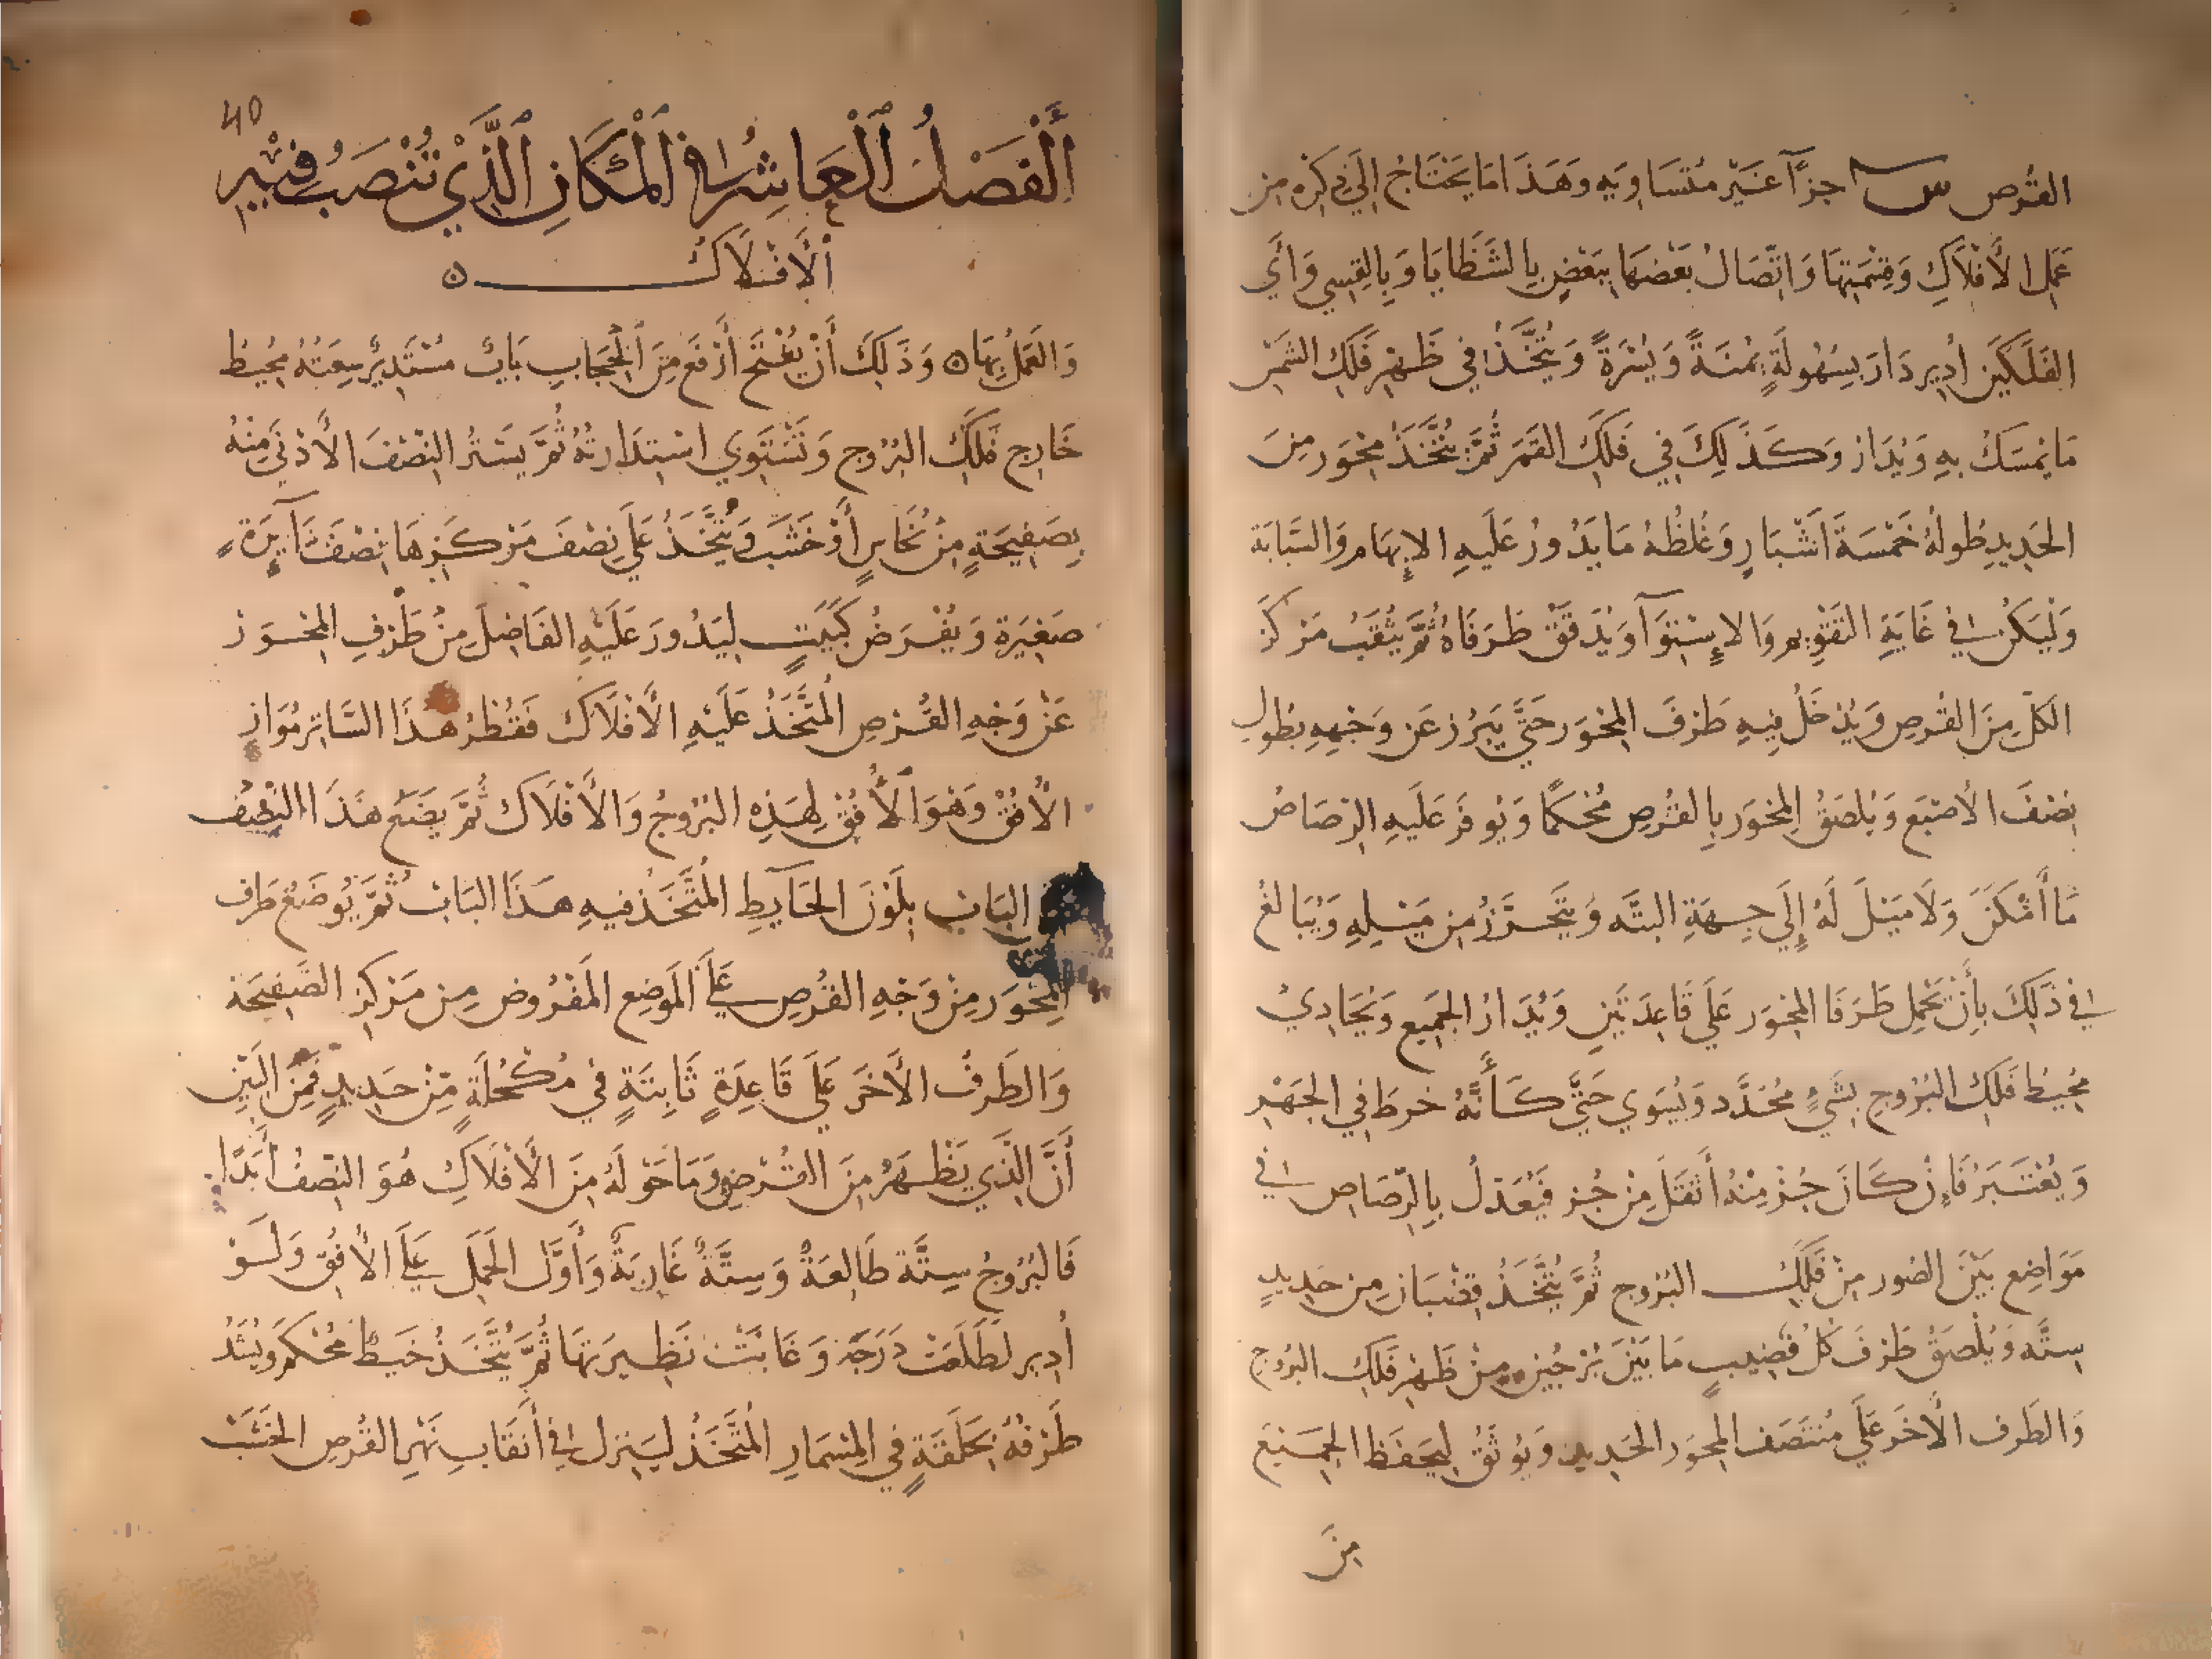 القُرص س جزًآ غَيْر مُتَسَاويَه وَهَذَا مَا يَحْتَاجُ اِلَى ذِكره مِن
عَمَل الأَفلَاكِ وَقِسْمَتِهَا وَاتِّصَالُ بَعْضهَا بِبَعْضٍ بِالشَّظَايَا وَبِالقِسِي وَأَي
الفَلَكَيَن اُدِير دَارَ بِسِهُولَةٍ يُمنَةً وَيُسْرَةً وَيُتَّخَذُ في ظَهْرِ فَلَكِ الشمَسْ
مَا يُمسَكُ بهِ وَيُدَار وَكَذَلِكَ في فَلَكَ القَمَر ثُمَّ يُتَّخَذُ مِحْوَر مِنَ
الحَدِيدِ طُولُهُ خَمْسَةَ اَشْبَارٍ وَغُلظُهُ مَا يَدُورُ عَلَيهِ الإِبهَام وَالسَّبَابَة
وَلْيَكُن في غَايَةِ التقْوِيم وَالإِسْتِوَآ وَيُدَقَّقْ طَرَفَاهُ ثُمَّ يُثقَبُ مَركَز
الكلّ مِنَ القُرصِ وَيُدْخَلُ فِيهِ طَرْفَ المِحْوَر حَتَّى يَبَرُز عَن وَجْههِ بطُول
نصْفَ الأصْبَع وَيُلصَقُ المِحْوَر بِالقُرصِ مُحْكَمًا وَيُوفَر عَلَيهِ الرصَاصُ
مَا أَمْكَنَ وَلَا مَيْلَ لَهُ إِلَى جِهَةِ البتَّه وَيَتَحَرَّزُ مِن مَيْلهِ وَيُبَالغُ
في ذَلِكَ بِأَنْ تَحْمِل طَرَفَا المِحْوَر عَلَى قَاعِدَتَينِ وَيُدَارُ الجَمِيع وَيُحَادِيُ
مُحِيطُ فَلَكِ البُرُوجِ بشَيْءٍ مُحَدَّد وَيُسَوي حَتَّى كَأَنَّهُ خرطَ في الجَهْر
وَيُعْتَبَرُ فَإِنْ كَانَ جُزْ مِنْهُ أَثقَلَ مِنْ جُز فَيُعَدّلُ بِالرّصَاصِ في
مَوَاضِع بَيْنَ الصُور مِنْ فَلَكِ البُرُوج ثُمَّ يُتَّخَذُ قِضْبَان مِن حَدِيدٍ
سِتَّه وَيُلْصَقُ طَرْفَ كُل قَضِيبٍ مَا بَيْنَ بُرْجَيْن مِنْ ظَهْر فَلَكِ البرُوجِ
وَالطَرف الآخَر عَلَى مُنْتَصَف المِحْوَر الحَدِيد وَيُوثَقُ لِيَحفَظ الجَمِيْعَ
مِنَ
40
أَلْفَصْلُ اَلْعَاشِرُ في اَلْمَكَانِ اَلَّذِيْ تُنْصَبُ فِيْهِ
اَلأَفْلَاكُ ن
وَالعَمَلُ بِهَا ن وَذَلِكَ أَنْ يُفْتَحَ أَرْفَعَ مِنَ الحِجَابِ بَابٌ مُسْتَدِيرٌ سِعَتُهُ مُحِيطُ
خَارِج فَلَكَ البُرُوج وَتَسْتَوي اسْتِدَارتهُ ثُمَّ يَسْتُر النصْفَ الأَدْنَى مِنْهُ
بِصَفِيحَةٍ مِنْ نُحَاسٍ أَوْ خَشَبَ وَيُتَّخَذُ عَلَى نِصْفَ مَرْكَزهَا نِصْفَ دَآئِرَةٍ
صَغِيرَة وَيُفْرَضُ كَبَيْتٍ لِيَدُورَ عَلَيْهِ الفَاضِلَ مِنْ طَرَفِ المِحْوَر
عَنْ وَجْهِ القُرصِ المُتَّخَذُ عَلَيْهِ الأَفْلَاكَ فَقُطْرُ هَذَا السَّاتِر مُوَازِ
الأفُقْ وَهُوَ الأُفُقُ لِهَذِهِ البُرُوجُ وَالأَفْلَاك ثُمَّ يَضَعَ هَذَا النِصْف
البَابْ بِلَوْنَ الحَآئِطِ المُتَّخَذ فيهِ هَذَا البَابُ ثُمَّ يُوضَعُ طَرف
المِحْوَر مِنْ وَجْهِ القُرصِ عَلَى المَوضِع المَفْرُوض مِن مَرْكزِ الصَفِيحَة
وَالطَرفُ الأَخَر عَلَى قَاعِدَةٍ ثَابِتَةٍ في مُكْحُلَةٍ مِنْ حَدِيدٍ فَمِنَ البَيِّنِ
أَنَّ الذَي يَظْهَرُ مِنَ القُرْصِ وَمَا حَوْلَهُ مِنَ الأَفْلَاكِ هُوَ النِصْفُ أَبَدًا
فَالبُرُوجُ سِتَّة طَالِعَةً وَسِتَّةً غَارِبَةً وَأَوَّل الحَمَل عَلَى الأُفُق وَلَوْ
اُدِير لَطَلَعَتْ دَرَجَة وَغَابَتْ نَظِيرَتهَا ثُمَّ يُتَّخَذُ خَيطٌ مُحْكَم وَيُشَدُّ
طَرْفهُ بحَلَقَةٍ في المِسْمَارِ المُتَّخَذُ لِيَنزل في أَنقَابِ نَهْرِ القُرصِ الخَشَبْ